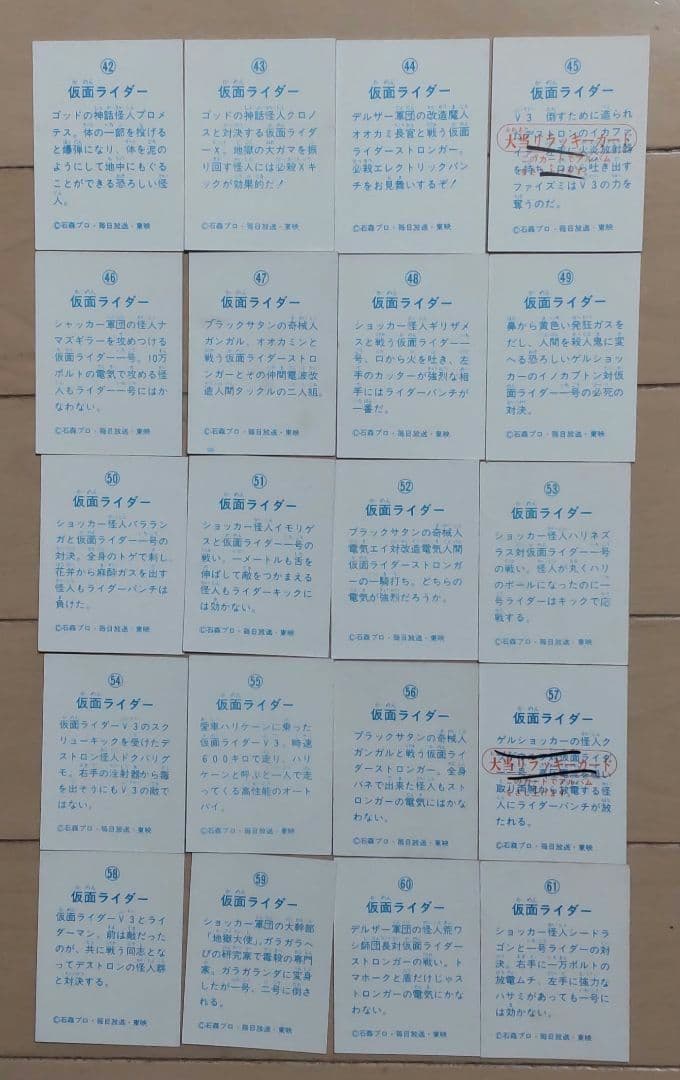 42
仮面ライダー
ゴッドの神話怪人プロメ
テス。体の一部を投げると
爆弾になり、体を泥の
ようにして地中にもぐる
ことができる恐ろしい怪
人。
©石森プロ・毎日放送・東映
43
仮面ライダー
ゴッドの神話怪人クロノ
スと対決する仮面ライダ
ーX、地獄の大ガマを振
り回す怪人には必殺Xキ
ックが効果的だ!
©石森プロ・毎日放送・東映
44
仮面ライダー
デルザー軍団の改造魔人
オオカミ長官と戦う仮面
ライダーストロンガー。
必殺エレクトリックパン
チをお見舞いするぞ!
©石森プロ・毎日放送・東映
45
仮面ライダー
V3 倒すために造られ
大当りラッキーカード
このカードでアルバム
を持ち 口から吐き出す
ファイズミはV3の力を
奪うのだ。
©石森プロ・毎日放送・東映
46
仮面ライダー
シャッカー軍団の怪人ナ
マズギラーを攻めつける
仮面ライダー一号。10万
ボルトの電気で攻める怪
人もライダー一号にはか
なわない。
©石森プロ・毎日放送・東映
47
仮面ライダー
ブラックサタンの奇械人
ガンガル、オオカミンと
戦う仮面ライダーストロ
ンガーとその仲間電波改
造人間タックルの二人組。
©石森プロ・毎日放送・東映
48
仮面ライダー
ショッカー怪人ギリザメ
スと戦う仮面ライダー一
号、口から火を吐き、左
手のカッターが強烈な相
手にはライダーパンチが
一番だ。
©石森プロ・毎日放送・東映
49
仮面ライダー
鼻から黄色い発狂ガスを
だし、人間を殺人鬼に変
へる恐ろしいゲルショッ
カーのイノカブトン対仮
面ライダー一号の必死の
対決。
©石森プロ・毎日放送・東映
50
仮面ライダー
ショッカー怪人バラランガ
と仮面ライダー一号の
対決。全身のトゲで刺し、
花弁から麻酔ガスを出す
怪人もライダーパンチは
負けた。
©石森プロ・毎日放送・東映
51
仮面ライダー
ショッカー怪人イモリゲ
スと仮面ライダー一号の
戦い。一メートルも舌を
伸ばして敵をつかまえる
怪人もライダーキックに
は効かない。
©石森プロ・毎日放送・東映
52
仮面ライダー
ブラックサタンの奇械人
電気エイ対改造電気人間
仮面ライダーストロンガ
ーの一騎打ち。どちらの
電気が強烈だろうか。
©石森プロ・毎日放送・東映
53
仮面ライダー
ショッカー怪人ハリネズ
ラス対仮面ライダー一号
の戦い。怪人が丸くハリ
のボールになったのに一
号ライダーはキックで応
戦する。
©石森プロ・毎日放送・東映
54
仮面ライダー
仮面ライダーV3のスク
リューキックを受けたデ
ストロン怪人ドクバリグ
モ。右手の注射器から毒
を出そうにもV3の敵で
はない。
©石森プロ・毎日放送・東映
55
仮面ライダー
愛車ハリケーンに乗った
仮面ライダーV3。時速
600キロで走り、ハリ
ケーンと呼ぶと一人で走
ってくる高性能のオート
バイ。
©石森プロ・毎日放送・東映
56
仮面ライダー
ブラックサタンの奇械人
ガンガルと戦う仮面ライ
ダーストロンガー。全身
バネで出来た怪人もスト
ロンガーの電気にはかな
わない。
©石森プロ・毎日放送・東映
57
仮面ライダー
ゲルショッカーの怪人ク
大当りラッキーカード
取り両腕から放電する怪
人にライダーパンチが放
たれる。
©石森プロ・毎日放送・東映
58
仮面ライダー
仮面ライダーV3とライ
ダーマン。前は敵だった
のが、共に戦う同志とな
ってデストロンの怪人群
と対決する。
©石森プロ・毎日放送・東映
59
仮面ライダー
ショッカー軍団の大幹部
「地獄大使」。ガラガラへ
びの研究家で毒殺の専門
家。ガラガランダに変身
したが一号、二号に倒さ
れる。
©石森プロ・毎日放送・東映
60
仮面ライダー
デルザー軍団の怪人荒ワ
シ師団長対仮面ライダー
ストロンガーの戦い。ト
マホークと盾だけじゃス
トロンガーの電気にかな
わない。
©石森プロ・毎日放送・東映
61
仮面ライダー
ショッカー怪人シードラ
ゴンと一号ライダーの対
決。右手に一万ボルトの
放電ムチ、左手に強力な
ハサミがあっても一号に
は効かない。
©石森プロ・毎日放送・東映